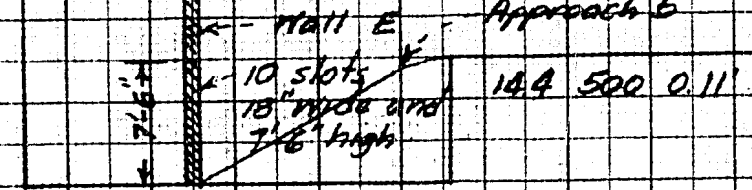 Wall E - Approach 5
10 slots
18" wide and
7'-6" high
7'-6"
14.4 500 0.11'